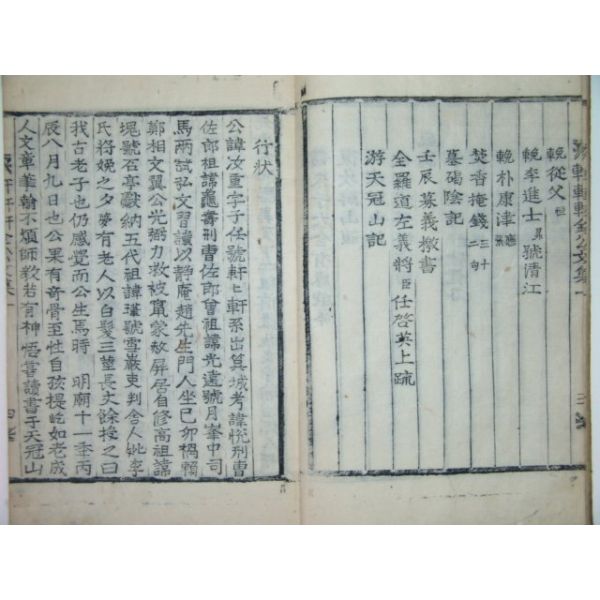 軒軒軒金公文集
輓從父
輓李進士 號清江
輓朴康津
焚香掩錢 三十句
墓碣陰記
壬辰募義檄書
全羅道左義將臣任啓英上疏
游天冠山記
三
行狀
公諱汝重字子任號軒〻軒系出箕城考諱悅刑曹
佐郎祖諱龜壽刑曹佐郎曾祖諱光遠號月峯中司
馬兩試弘文習讀以靜庵趙先生門人坐己卯禍賴
鄭相文翼公光弼力救被竄蒙赦屏居自修高祖諱
瑰號石亭獻納五代祖諱瑾號雪巖吏判舍人妣李
氏將娩之夕夢有老人以白髮三莖長丈餘授之曰
我古老子也仍感覺而公生焉時 明廟十一年丙
辰八月九日也公果有奇骨至性自孩提屹如老成
人文章華翰不煩師教若有神悟嘗讀書于天冠山
四